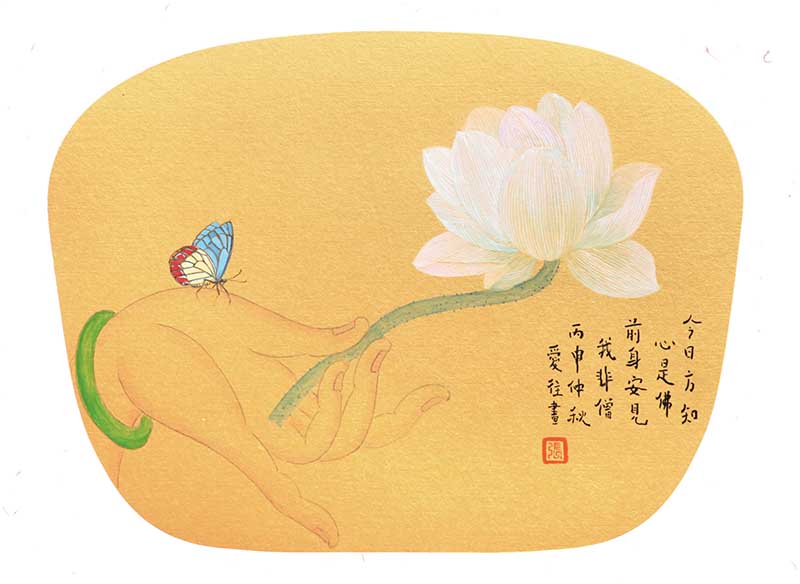 今日方知
心是佛
前身安見
我非僧
丙申仲秋
愛往畫
張